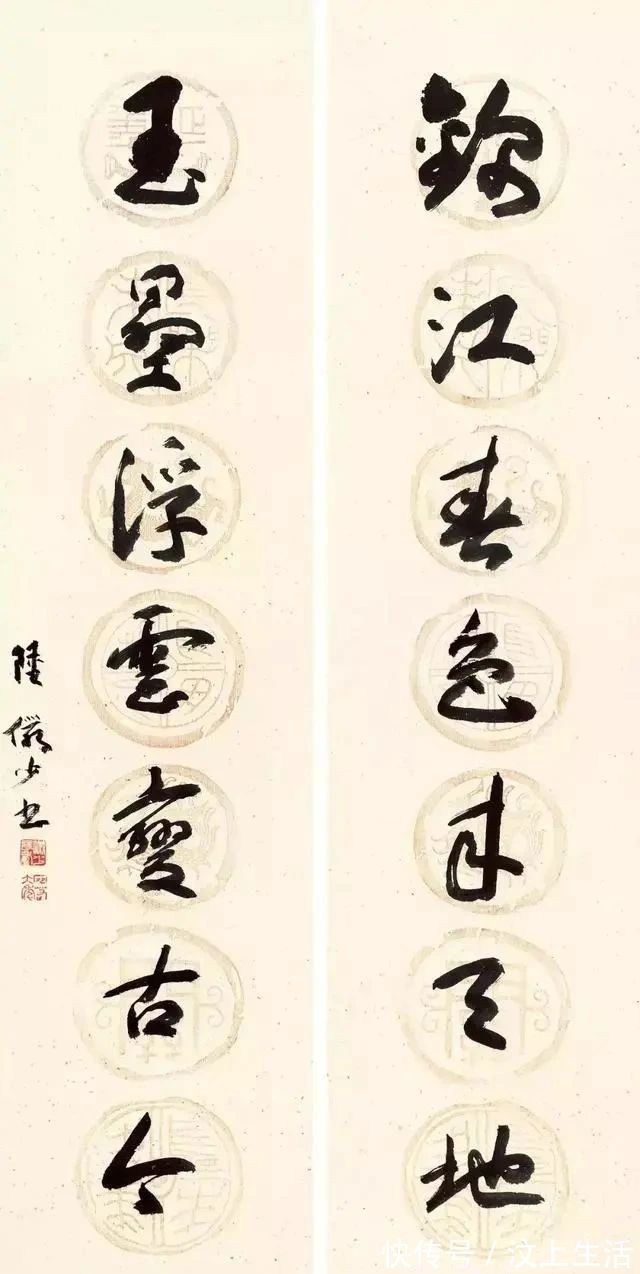 錦江春色來天地
玉壘浮雲變古今
陸儼少书
快传号 / 汶上生活